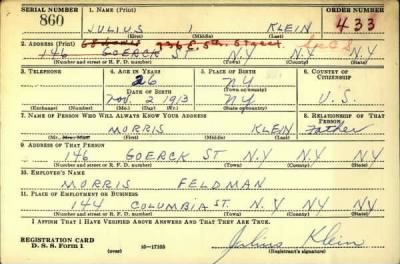 SERIAL NUMBER 1. NAME (Print) ORDER NUMBER
860 JULIUS I KLEIN 433
(First) (Middle) (Last)
2. ADDRESS (Print)
146 GOERCK ST N.Y N.Y
(Number and street or R. F. D. number) (Town) (County) (State)
3. TELEPHONE 4. AGE IN YEARS 5. PLACE OF BIRTH 6. COUNTRY OF CITIZENSHIP
26 NY
DATE OF BIRTH
Nov. 2 1913 NY U.S.
(Exchange) (Number) (Mo.) (Day) (Yr.) (State or country)
7. NAME OF PERSON WHO WILL ALWAYS KNOW YOUR ADDRESS 8. RELATIONSHIP OF THAT PERSON
MORRIS KLEIN Father
(Mr., Mrs., Miss) (First) (Middle) (Last)
9. ADDRESS OF THAT PERSON
146 GOERCK ST N.Y N.Y N.Y
(Number and street or R. F. D. number) (Town) (County) (State)
10. EMPLOYER'S NAME
MORRIS FELDMAN
11. PLACE OF EMPLOYMENT OR BUSINESS
144 COLUMBIA ST. N.Y N.Y N.Y
(Number and street or R. F. D. number) (Town) (County) (State)
I AFFIRM THAT I HAVE VERIFIED ABOVE ANSWERS AND THAT THEY ARE TRUE.
REGISTRATION CARD
D. S. S. FORM 1 (over) 16—17105 Julius Klein
(Registrant's signature)